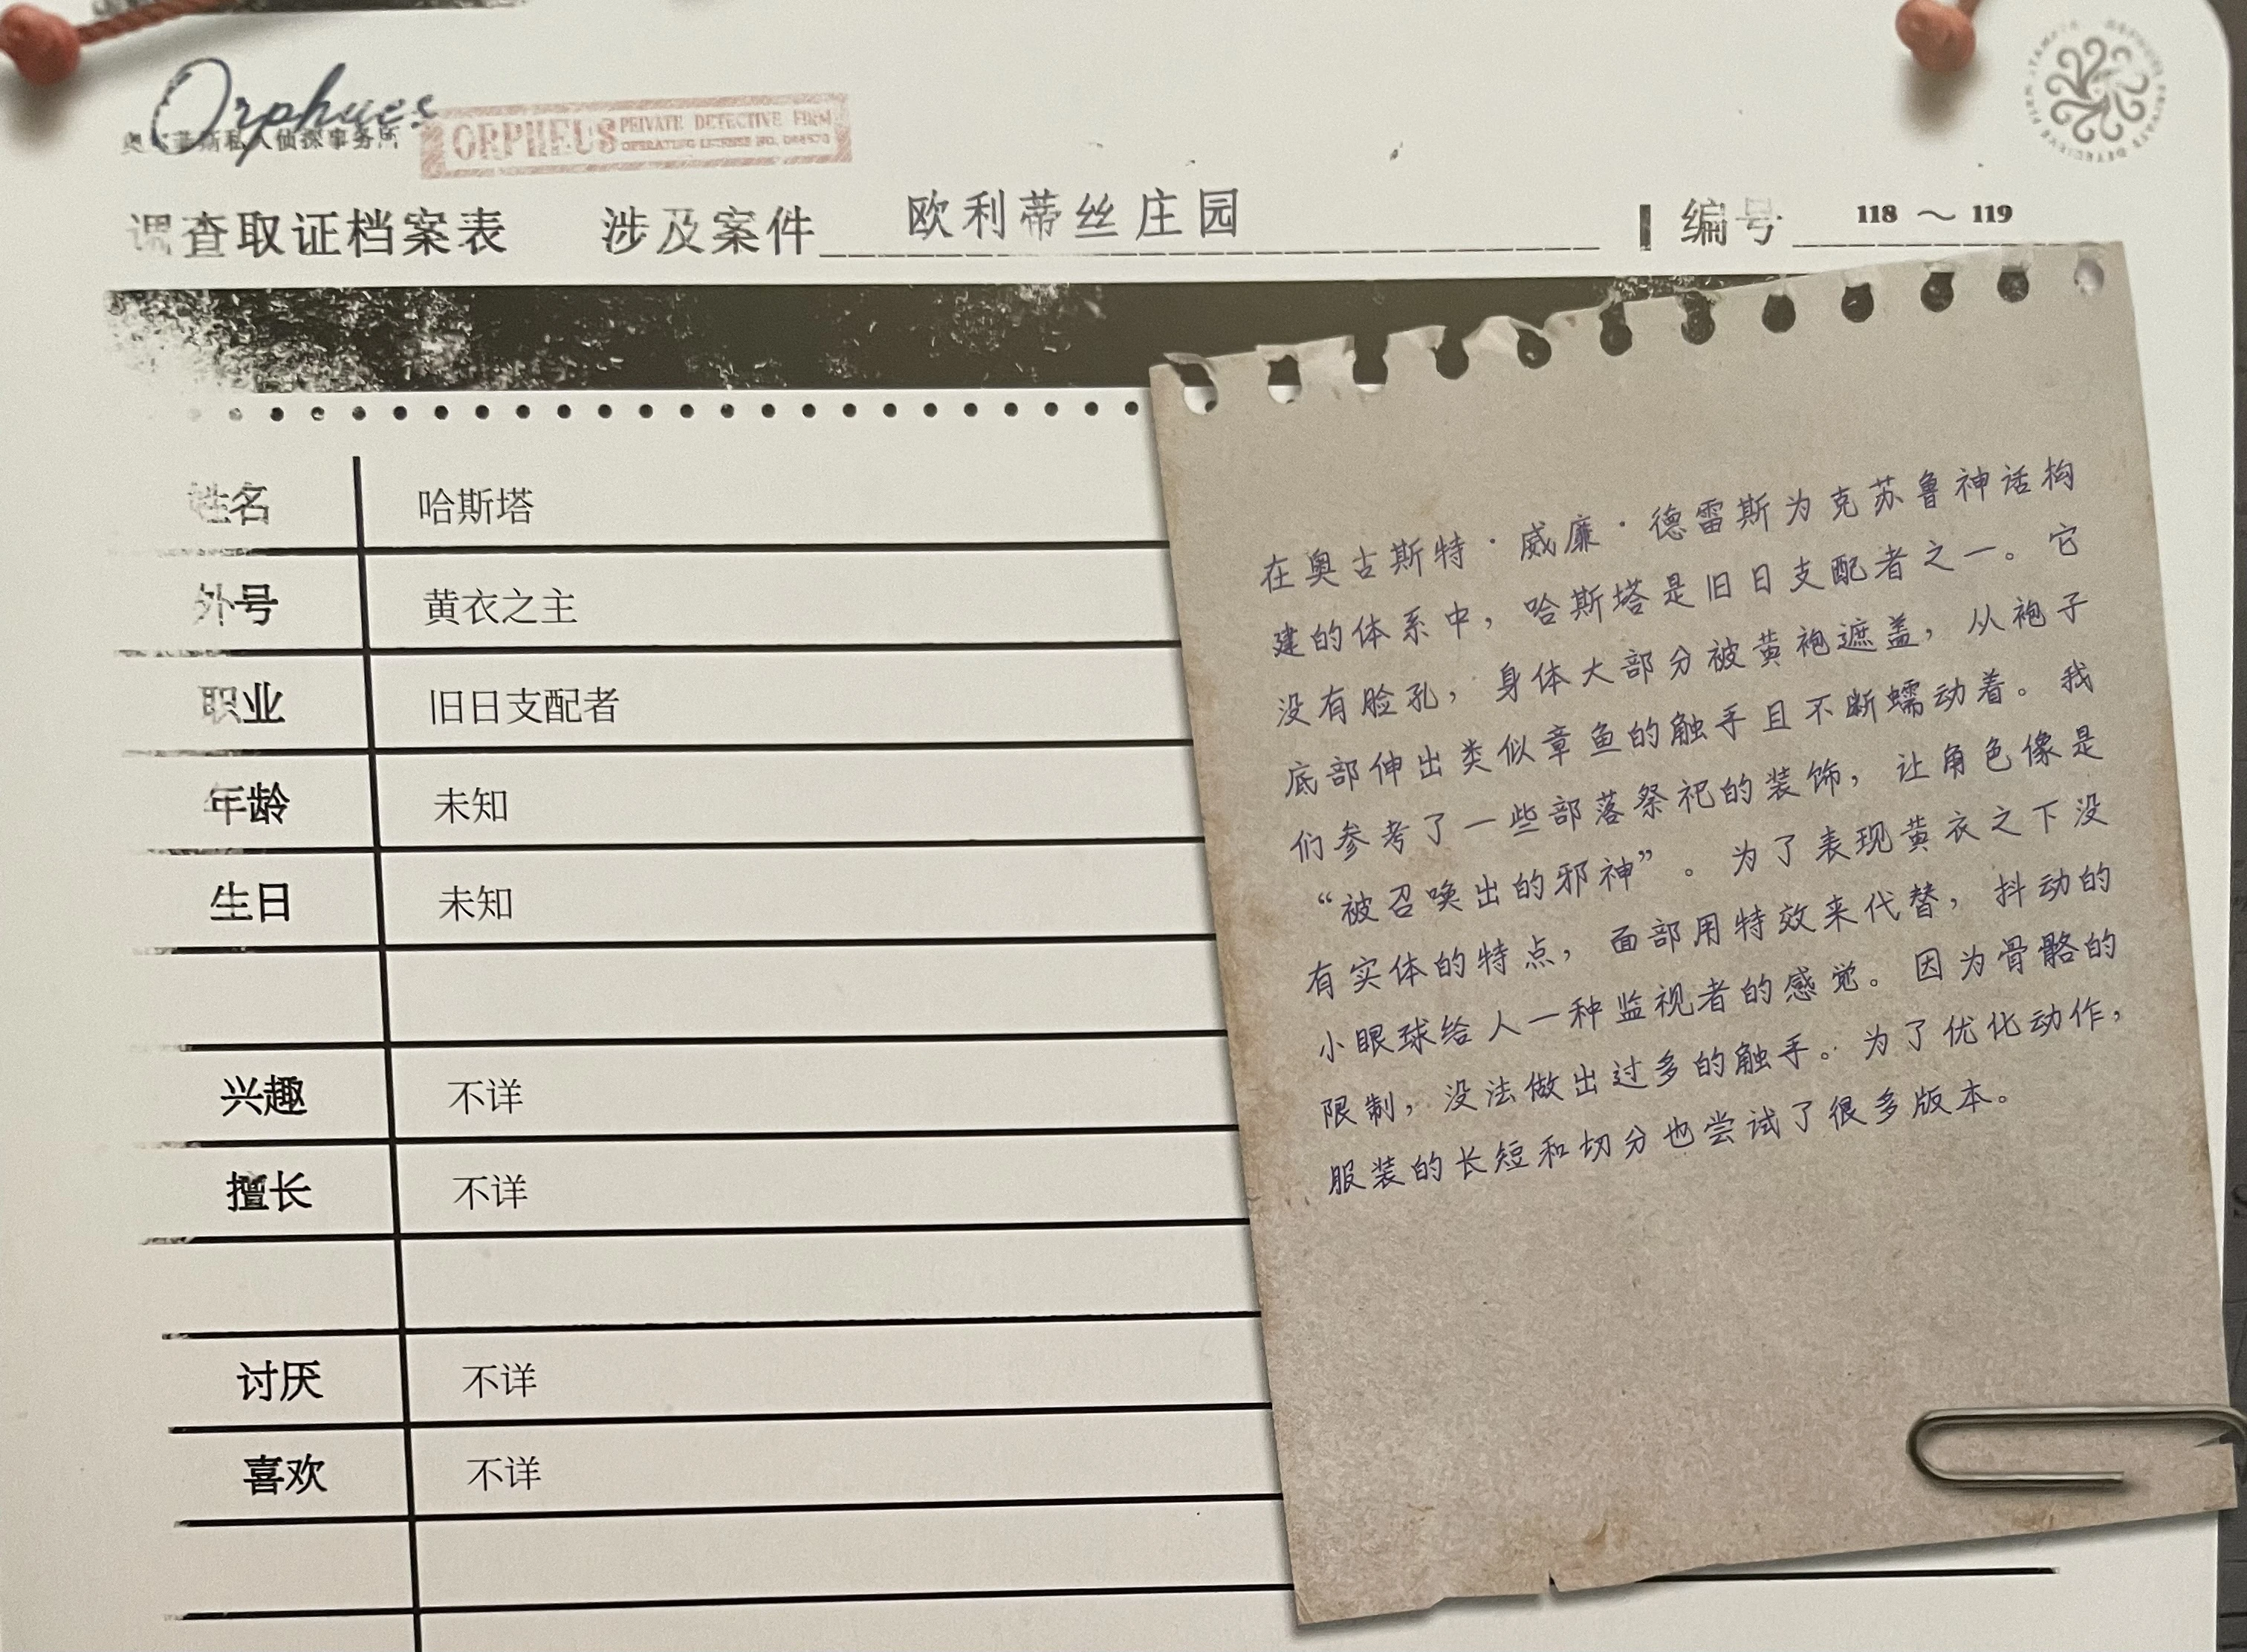 Orphues
奥尔菲斯私人侦探事务所
ORPHEUS PRIVATE DETECTIVE FIRM
OPERATING LICENSE NO.
调查取证档案表 涉及案件 欧利蒂丝庄园 编号 118 ～ 119
姓名 哈斯塔
外号 黄衣之主
职业 旧日支配者
年龄 未知
生日 未知
兴趣 不详
擅长 不详
讨厌 不详
喜欢 不详
在奥古斯特·威廉·德雷斯为克苏鲁神话构
建的体系中，哈斯塔是旧日支配者之一。它
没有脸孔，身体大部分被黄袍遮盖，从袍子
底部伸出类似章鱼的触手且不断蠕动着。我
们参考了一些部落祭祀的装饰，让角色像是
“被召唤出的邪神”。为了表现黄衣之下没
有实体的特点，面部用特效来代替，抖动的
小眼球给人一种监视者的感觉。因为骨骼的
限制，没法做出过多的触手。为了优化动作，
服装的长短和切分也尝试了很多版本。